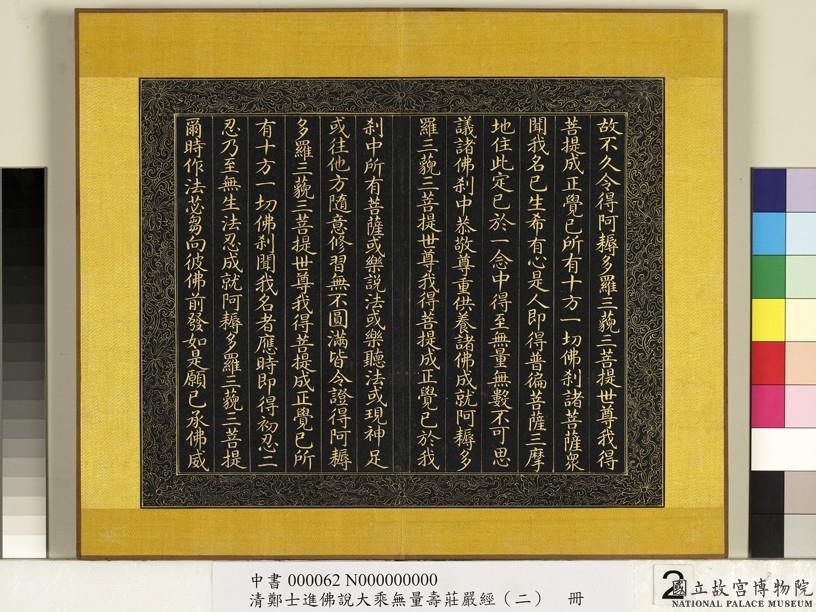 故不久令得阿耨多羅三藐三菩提世尊我得
菩提成正覺已所有十方一切佛剎諸菩薩眾
聞我名已生希有心是人即得普徧菩薩三摩
地住此定已於一念中得至無量無數不可思
議諸佛剎中恭敬尊重供養諸佛成就阿耨多
羅三藐三菩提世尊我得菩提成正覺已於我
剎中所有菩薩或樂說法或樂聽法或現神足
或往他方隨意修習無不圓滿皆令證得阿耨
多羅三藐三菩提世尊我得菩提成正覺已所
有十方一切佛剎聞我名者應時即得初忍二
忍乃至無生法忍成就阿耨多羅三藐三菩提
爾時作法苾芻向彼佛前發如是願已承佛威
中書 000062 N000000000
清鄭士進佛說大乘無量壽莊嚴經（二） 冊
2
國立故宮博物院
NATIONAL PALACE MUSEUM